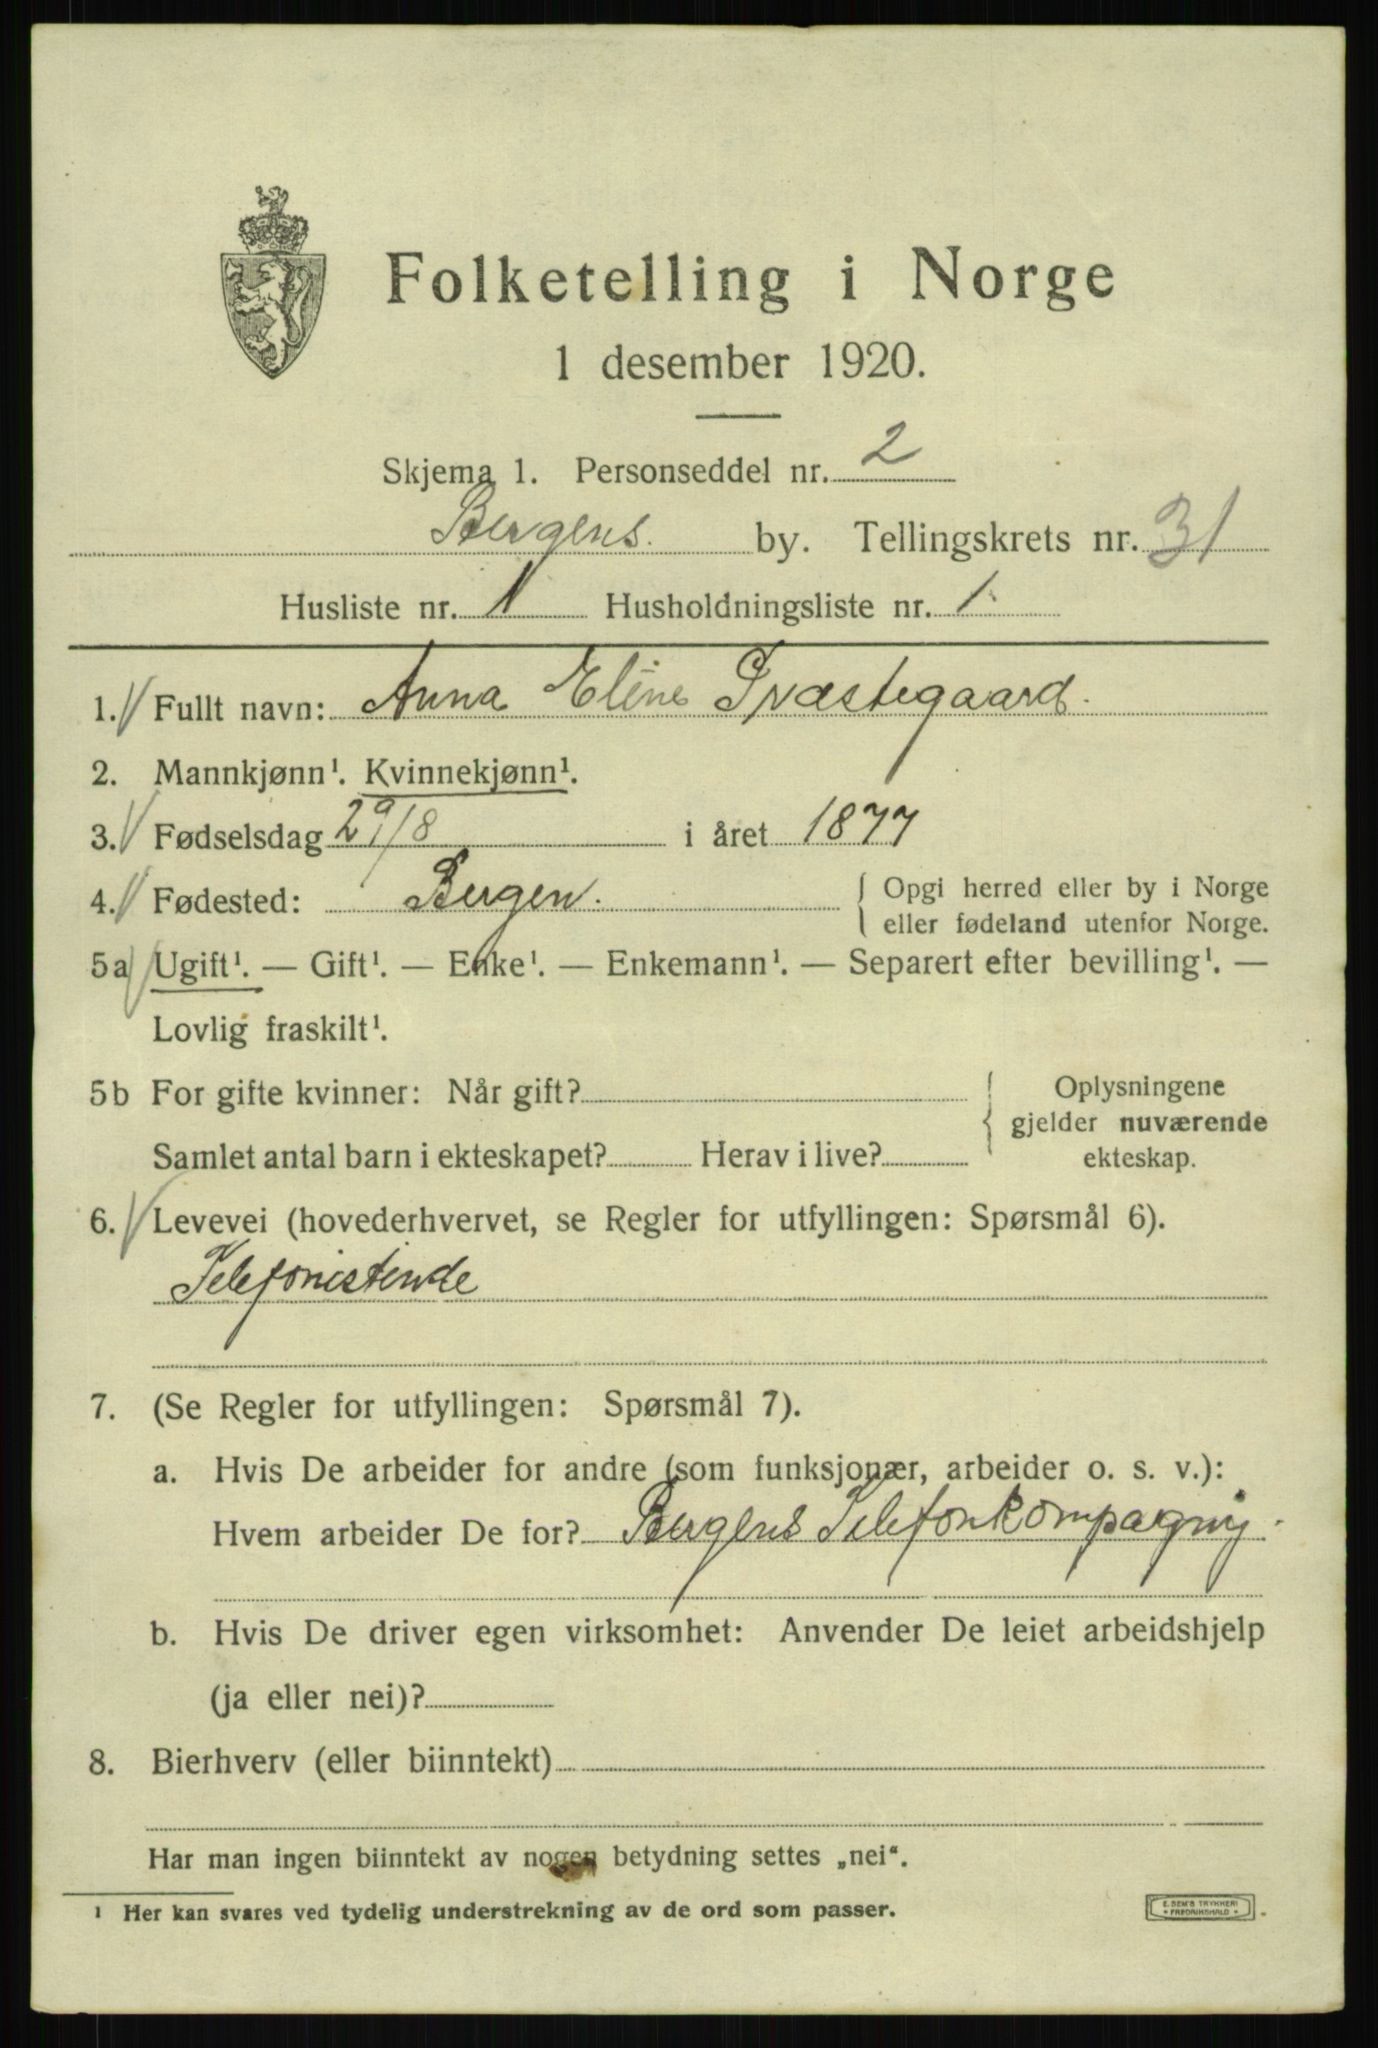 Folketelling i Norge
1 desember 1920.
Skjema 1. Personseddel nr. 2
Bergens by. Tellingskrets nr. 31
Husliste nr. 1 Husholdningsliste nr. 1.
1. Fullt navn: Anna Eline Præstegaard.
2. Mannkjønn¹. Kvinnekjønn¹.
3. Fødselsdag 29/8 i året 1877
4. Fødested: Bergen. { Opgi herred eller by i Norge
eller fødeland utenfor Norge.
5a Ugift¹. — Gift¹. — Enke¹. — Enkemann¹. — Separert efter bevilling¹. —
Lovlig fraskilt¹.
5b For gifte kvinner: Når gift? { Oplysningene
gjelder nuværende
Samlet antal barn i ekteskapet? Herav i live? ekteskap.
6. Levevei (hovederhvervet, se Regler for utfyllingen: Spørsmål 6).
Telefonistinde
7. (Se Regler for utfyllingen: Spørsmål 7).
a. Hvis De arbeider for andre (som funksjonær, arbeider o. s. v.):
Hvem arbeider De for? Bergens Telefonkompagni.
b. Hvis De driver egen virksomhet: Anvender De leiet arbeidshjelp
(ja eller nei)?
8. Bierhverv (eller biinntekt)
Har man ingen biinntekt av nogen betydning settes „nei“.
¹ Her kan svares ved tydelig understrekning av de ord som passer.
E. SEM'S TRYKKERI
FREDRIKSHALD